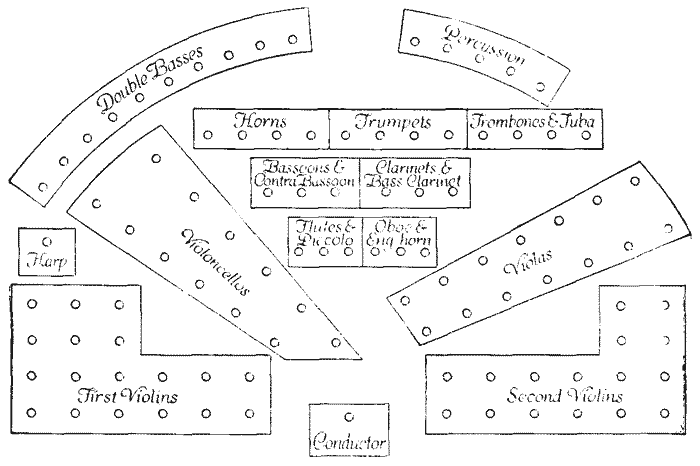 Double Basses
Percussion
Horns
Trumpets
Trombones & Tuba
Bassoons &
Contra Bassoon
Clarinets &
Bass Clarinet
Flutes &
Piccolo
Oboe &
Eng horn
Violoncellos
Violas
Harp
First Violins
Second Violins
Conductor